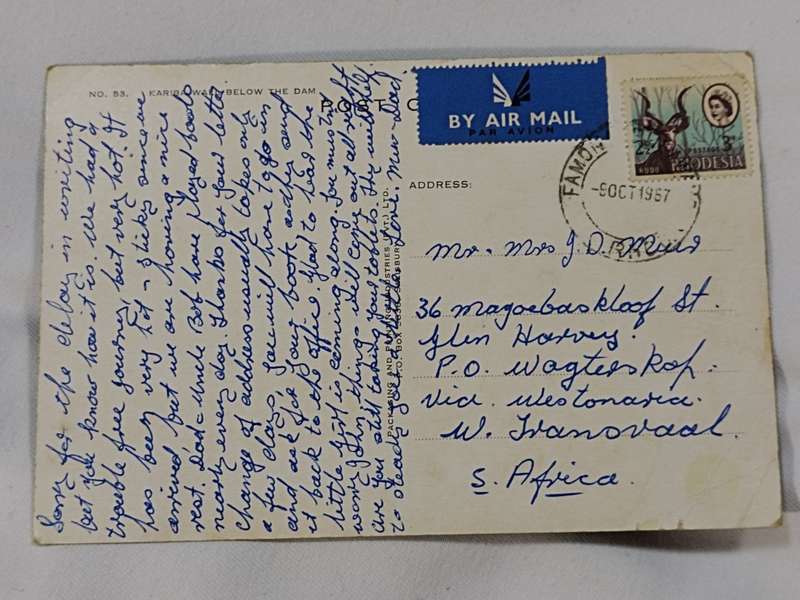 NO. 53. KARIBA WALL BELOW THE DAM
POST C
BY AIR MAIL
PAR AVION
KUDU
POSTAGE
RHODESIA
FAMON
-9 OCT 1967
ADDRESS:
PACKAGING AND PRINTING INDUSTRIES (PVT.) LTD.
P.O. BOX SALISBURY
Sorry for the delay in writing
but you know how it is. We had a
trouble free journey, but very hot. It
has been very hot & sticky since we
arrived but we are having a nice
rest. Dad & Uncle Bob have played bowls
nearly every day. Thanks for your letter
Change of address usually takes only
a few days. You will have to go in
and ask for your book and/or send
it back to the office. Glad to hear the
little girl is coming along. You mustn't
worry things will come out alright
Are you still taking your tablets.
to Love. Mum & Dad.
Mr. Mrs J. D. Muir
36 Magoebaskloof St.
Glen Harvey.
P.O. Wagterskop.
Via. Westonaria.
W. Transvaal.
S. Africa.